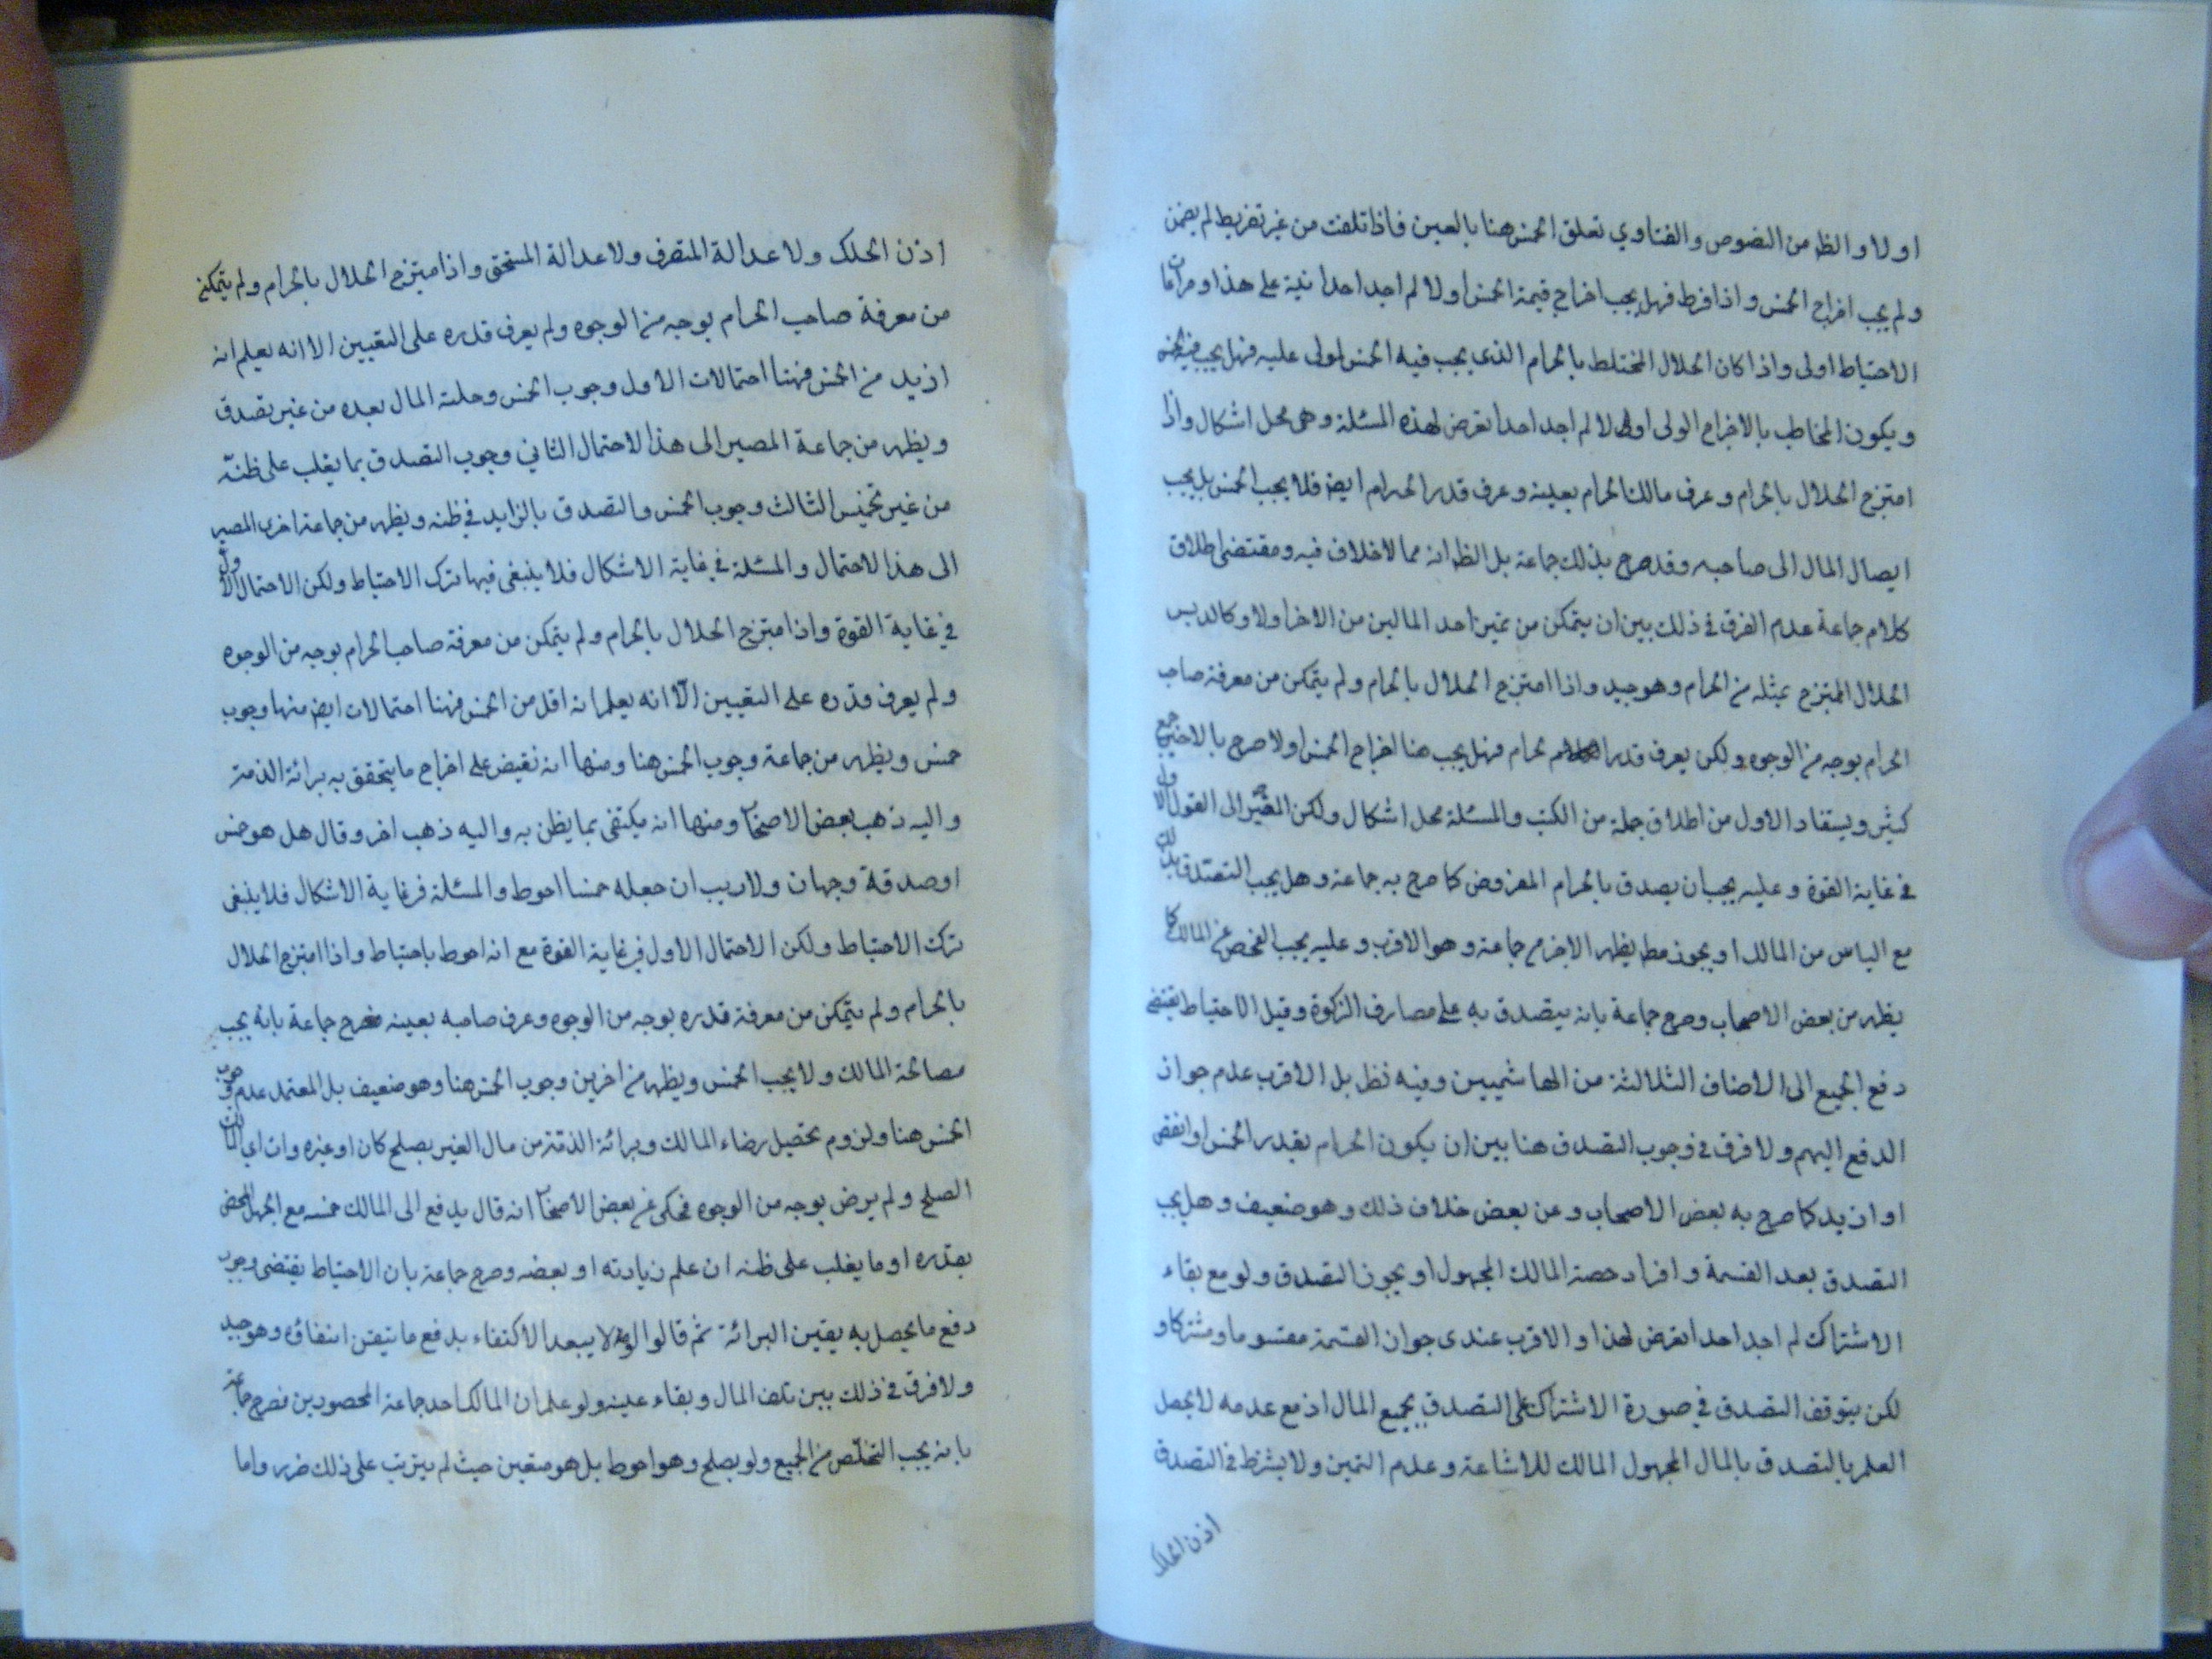 او لا و الظ من النصوص و الفتاوي تعلق الخمس هنا بالعين فاذا تلفت من غير تفريط لم يضمن
و لم يجب اخراج الخمس و اذا فرط فهل يجب اخراج قيمة الخمس او لا لم اجد احدا نبه على هذا و مراعات
الاحتياط اولى و اذا كان الحلال المختلط بالحرام الذي يجب فيه الخمس لمولى عليه فهل يجب فيه الخمس
و يكون المخاطب بالاخراج الولى او لا لم اجد احدا تعرض لهذه المسئلة و هى محل اشكال و اذا
امتزج الحلال بالحرام و عرف مالك الحرام بعينه و عرف قدر الحرام ايض فلا يجب الخمس بل يجب
ايصال المال الى صاحبه و قد صرح بذلك جماعة بل الظ انه مما لا خلاف فيه و مقتضى اطلاق
كلام جماعة عدم الفرق في ذلك بين ان يتمكن من تميز احد المالين من الاخر او لا و كالدبس
الحلال الممتزج بمثله من الحرام و هو جيد و اذا امتزج الحلال بالحرام و لم يتمكن من معرفة صاحب
الحرام بوجه من الوجوه و لكن يعرف قدر الحرام فهل يجب هنا اخراج الخمس او لا صرح بالاخير جمع
كثير و يستفاد الاول من اطلاق جملة من الكتب و المسئلة محل اشكال و لكن المصير الى القول الاول
في غاية القوة و عليه يجب ان يصدق بالحرام المعزوض كما صرح به جماعة و هل يجب التصدق بذلك
مع الياس من المالك او يجوز مط يظهر الاخير من جماعة و هو الاقرب و عليه يجب الفحص عن المالك كما
يظهر من بعض الاصحاب و صرح جماعة بانه يتصدق به على مصارف الزكوة و قيل الاحتياط يقتضى
دفع الجميع الى الاصناف الثلاثة من الهاشميين و فيه نظر بل الاقرب عدم جواز
الدفع اليهم و لا فرق في وجوب التصدق هنا بين ان يكون الحرام بقدر الخمس او انقص
او ازيد كما صرح به بعض الاصحاب و عن بعض خلاف ذلك و هو ضعيف و هل يجب
التصدق بعد القسمة و افراد حصة المالك المجهول او يجوز التصدق و لو مع بقاء
الاشتراك لم اجد احدا تعرض لهذا و الاقرب عندى جواز القسمة مقسوما و مشتركا و
لكن يتوقف التصدق في صورة الاشتراك على التصدق بجميع المال اذ مع عدمه لا يحصل
العلم بالتصدق بالمال المجهول المالك للاشاعة و عدم التميز و لا يشترط في التصدق
اذن الحاكم
اذن الحاكم و لا عدالة المتصرف و لا عدالة المستحق و اذا امتزج الحلال بالحرام و لم يتمكن
من معرفة صاحب الحرام بوجه من الوجوه و لم يعرف قدره على التعيين الا انه يعلم انه
ازيد من الخمس فهنا احتمالات الاول وجوب الخمس و حلية المال بعده من غير تصدق
و يظهر من جماعة المصير الى هذا الاحتمال الثاني وجوب التصدق بما يغلب على ظنه
من غير تخميس الثالث وجوب الخمس و التصدق بالزايد في ظنه و يظهر من جماعة اخرى المصير
الى هذا الاحتمال و المسئلة في غاية الاشكال فلا ينبغى فيها ترك الاحتياط و لكن الاحتمال الاول
في غاية القوة و اذا امتزج الحلال بالحرام و لم يتمكن من معرفة صاحب الحرام بوجه من الوجوه
و لم يعرف قدره على التعيين الّا انه يعلم انه اقل من الخمس فهنا احتمالات ايض منها وجوب
خمس و يظهر من جماعة وجوب الخمس هنا و منها انه نقيض على اخراج ما يتحقق به برائة الذمة
و اليه ذهب بعض الاصحاب و منها انه يكتفى بما يظن به و اليه ذهب اخر و قال هل هو خمس
او صدقة وجهان و لا ريب ان جعله خمسا احوط و المسئلة في غاية الاشكال فلا ينبغى
ترك الاحتياط و لكن الاحتمال الاول في غاية القوة مع انه احوط باحتياط و اذا امتزج الحلال
بالحرام و لم يتمكن من معرفة قدره بوجه من الوجوه و عرف صاحبه بعينه فصرح جماعة بانه يجب
مصالحة المالك و لا يجب الخمس و يظهر من اخرين وجوب الخمس هنا و هو ضعيف بل المعتمد عدم وجوب
الخمس هنا و لزوم تحصيل رضاء المالك و برائة الذمة من مال الغير بصلح كان او غيره و ان ابى المالك
الصلح و لم يرض بوجه من الوجوه فحكى عن بعض الاصحاب انه قال يدفع الى المالك خمسه مع الجهل المحض
بقدره او ما يغلب على ظنه ان علم زيادته او بعضه و صرح جماعة بان الاحتياط يقتضى وجوب
دفع ما يحصل به يقين البرائة ثم قالوا لا يبعد الاكتفاء بدفع ما تيقن انتفاؤه و هو جيد
و لا فرق في ذلك بين تلف المال و بقاء عينه و لو علم ان المالك احد جماعة المحصورين فصرح جماعة
بانه يجب التخلّص من الجميع و لو بصلح و هو احوط بل هو متعين حيث لم يترتب على ذلك ضرر و اما